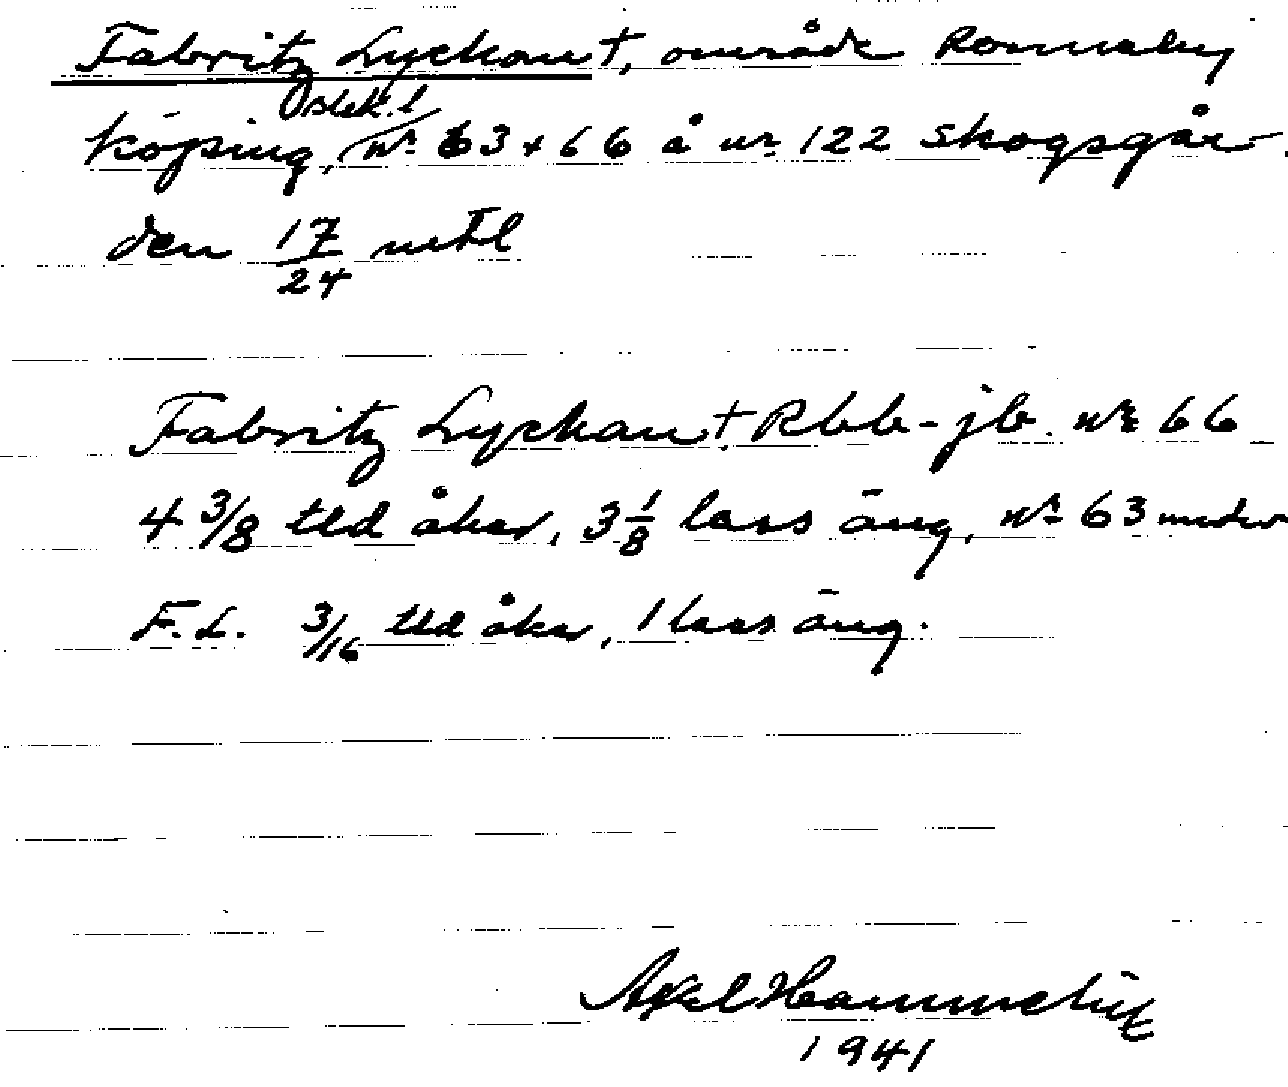 Fabritz Lyckan †, område Ronneby
östek. l
köping, nr 63 + 66 å nr 122 Skogsgår-
den 17/24 mtl
Fabritz Lyckan † Rbb-jb. nr 66
4 3/8 tld åker, 3 1/8 lass äng, nr 63 under
F. L. 3/16 tld åker, 1 lass äng.
Axel
1941